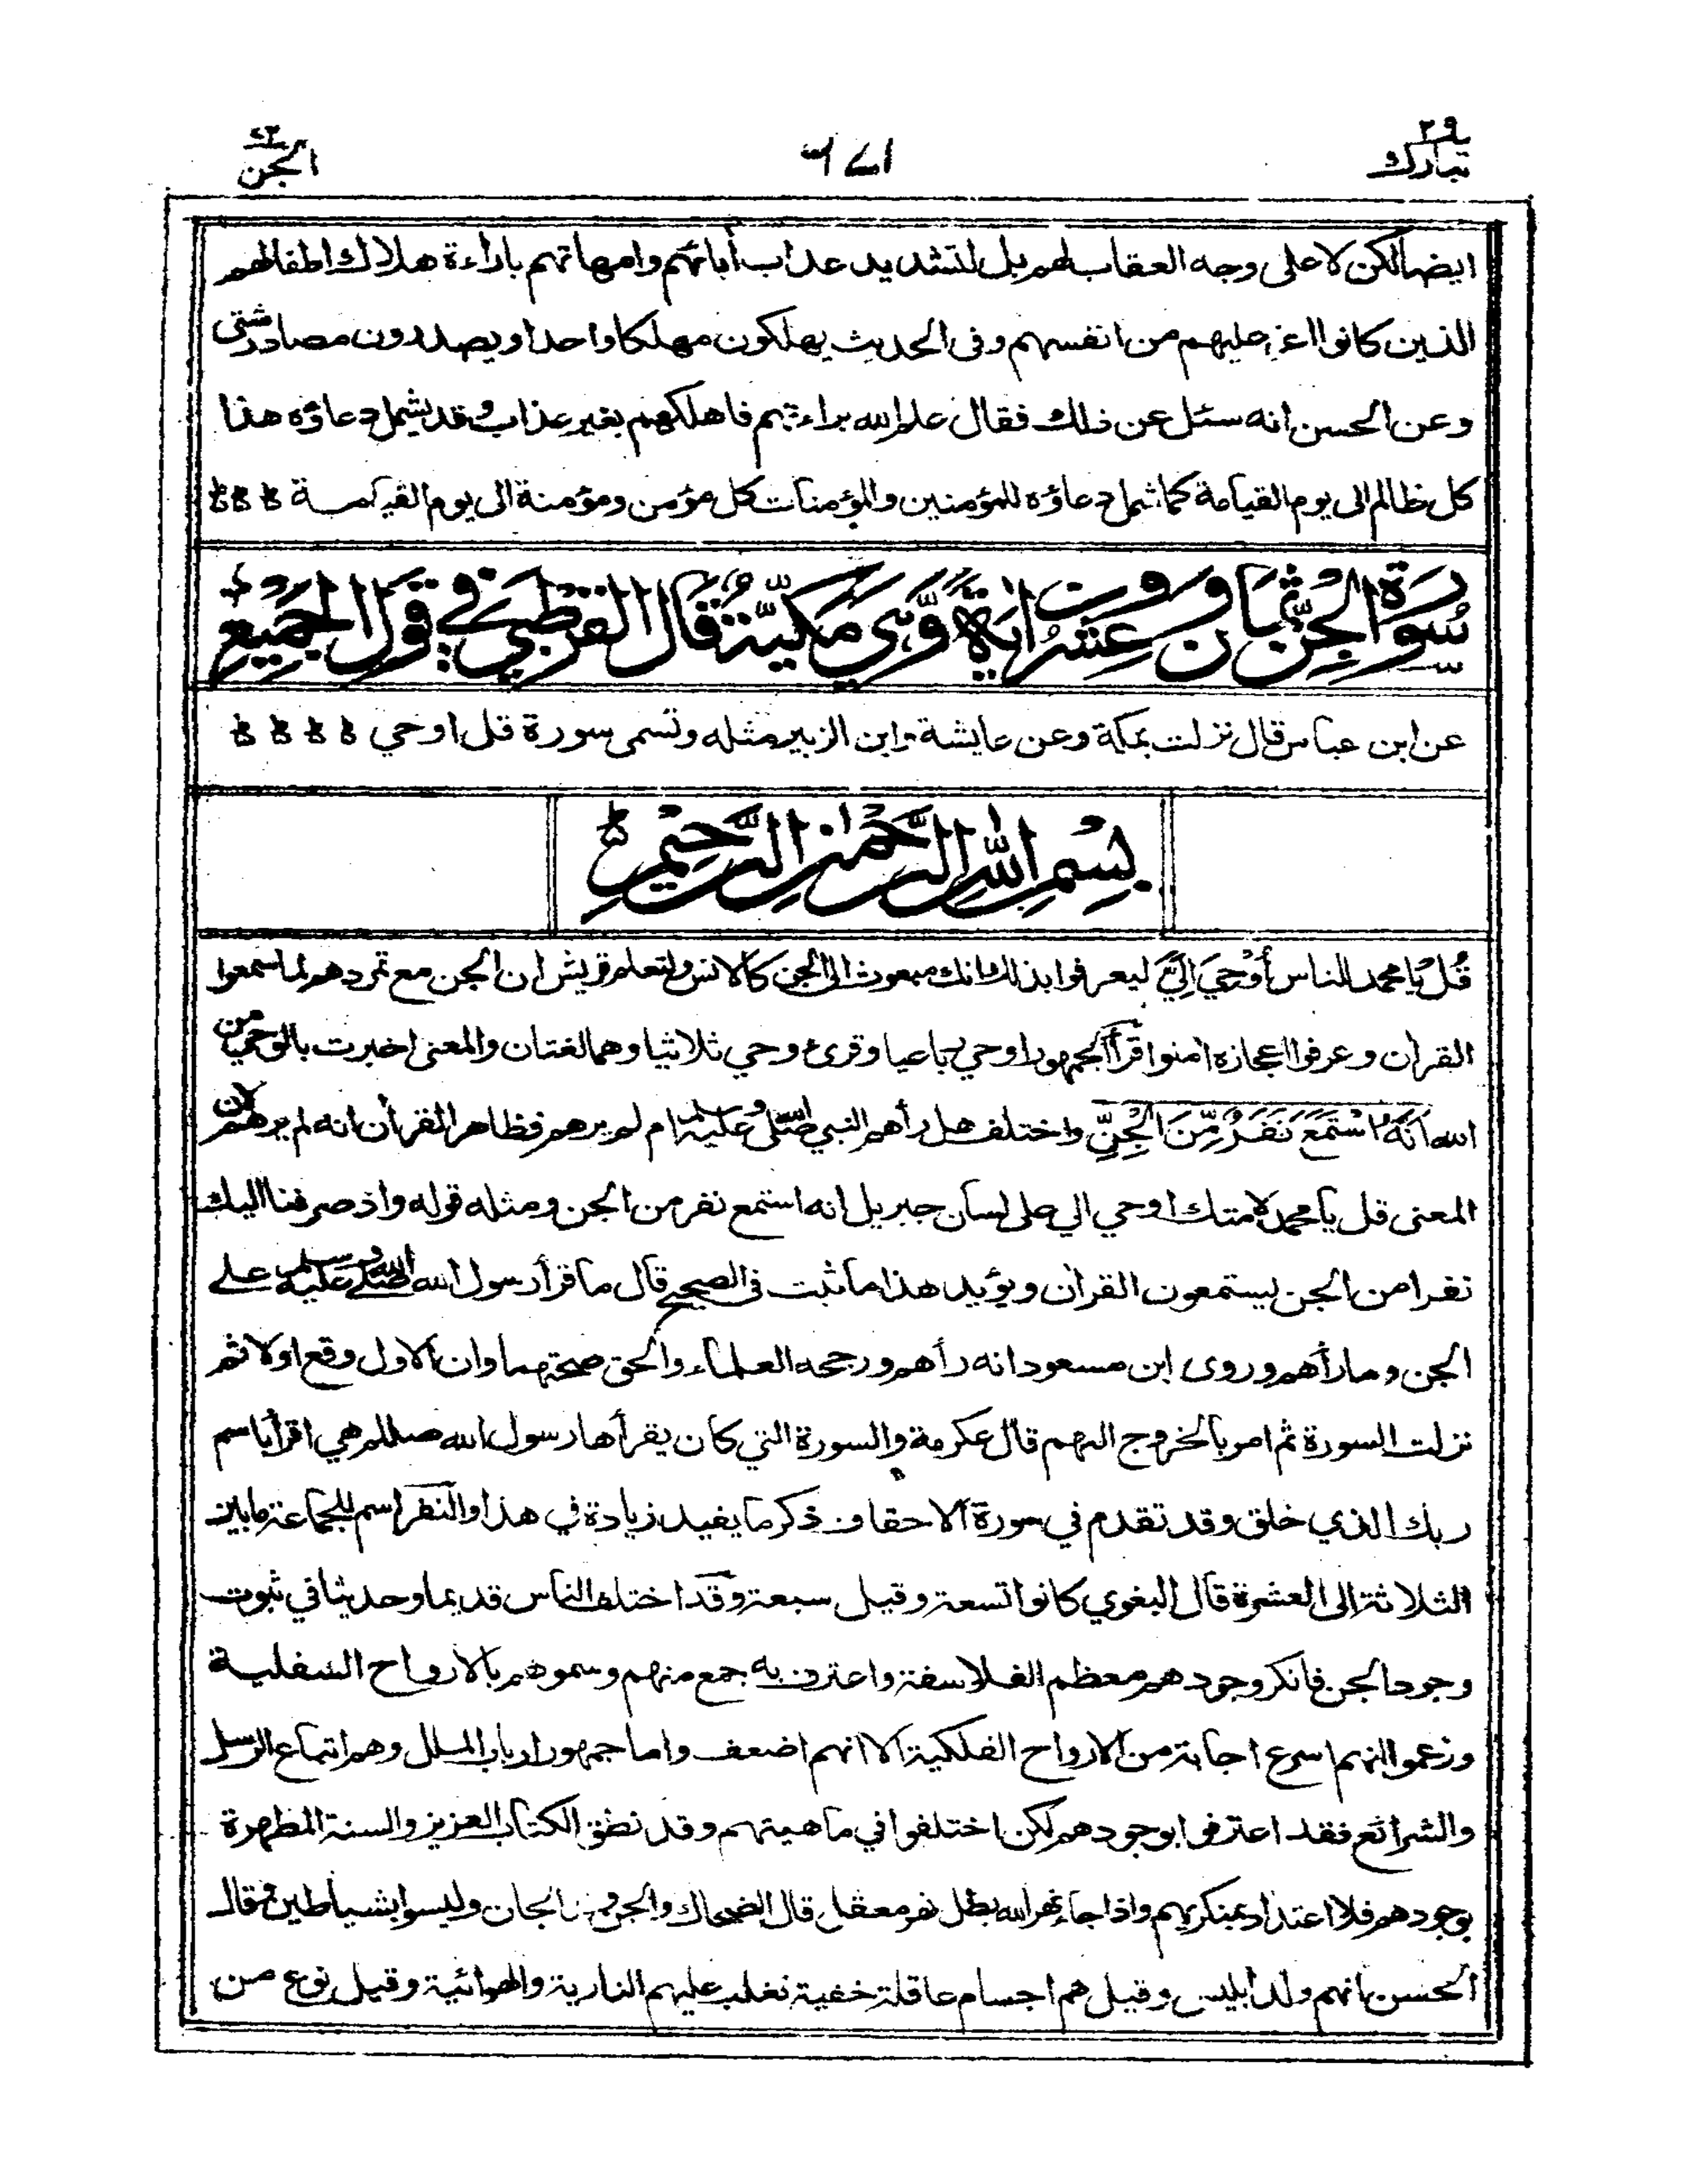 تبارك ٢٩
١٧٦
الجن ٧٢
ايضا لكن لا على وجه العقاب لهم بل لتشديد عذاب أبائهم وامهاتهم باراءة هلاك اطفالهم
الذين كانوا اعز عليهم من انفسهم وفى الحديث يهلكون مهلكا واحدا ويصدرون مصادر شتى
وعن الحسن انه سئل عن ذلك فقال علم الله براءتهم فاهلكهم بغير عذاب وقد يشمل دعاؤه هذا
كل ظالم الى يوم القيامة كما شمل دعاؤه للمؤمنين والمؤمنات كل مؤمن ومؤمنة الى يوم القيامة
سُوْرَةُ الْجِنِّ ثَمَانٍ وَعِشْرُوْنَ اٰيَةً وَّهِيَ مَكِّيَّةٌ قَالَ الْقُرْطُبِيُّ فِي قَوْلِ الْجَمِيْعِ
عن ابن عباس قال نزلت بمكة وعن عايشة وابن الزبير مثله وتسمى سورة قل اوحي
بِسْمِ اللّٰهِ الرَّحْمٰنِ الرَّحِيْمِ
قُلْ يا محمد للناس أُوْحِيَ اِلَيَّ ليعرفوا بذلك انك مبعوث الى الجن كالانس ولتعلم قريش ان الجن مع تمردهم لما سمعوا
القرأن وعرفوا اعجازه امنوا قرأ الجمهور اوحي رباعيا وقرئ وحي ثلاثيا وهما لغتان والمعنى اخبرت بالوحي من
الله اَنَّهُ اسْتَمَعَ نَفَرٌ مِّنَ الْجِنِّ واختلف هل رأهم النبي صلى الله عليه وسلم ام لم يرهم فظاهر القرأن انه لم يرهم لان
المعنى قل يا محمد لامتك اوحي الي على لسان جبريل انه استمع نفر من الجن ومثله قوله واذ صرفنا اليك
نفرا من الجن يستمعون القرأن ويؤيد هذا ما ثبت فى الصحيح قال ما قرأ رسول الله صلى الله عليه وسلم على
الجن وما رأهم وروى ابن مسعود انه رأهم ورجحه العلماء والحق صحتهما وان الاول وقع اولا ثم
نزلت السورة ثم امر بالخروج اليهم قال عكرمة والسورة التي كان يقرأها رسول الله صللم هي اقرأ باسم
ربك الذي خلق وقد تقدم في سورة الاحقاف ذكر ما يفيد زيادة في هذا والنفر اسم للجماعة ما بين
الثلاثة الى العشرة قال البغوي كانوا تسعة وقيل سبعة وقد اختلف الناس قديما وحديثا في ثبوت
وجود الجن فانكر وجودهم معظم الفلاسفة واعترف به جمع منهم وسموهم بالارواح السفلية
وزعموا انهم اسرع اجابة من الارواح الفلكية الا انهم اضعف واما جمهور ارباب الملل وهم اتباع الرسل
والشرائع فقد اعترفوا بوجودهم لكن اختلفوا في ماهيتهم وقد نطق الكتاب العزيز والسنة المطهرة
بوجودهم فلا اعتداد بمنكريهم واذا جاء نهر الله بطل نهر معقل قال الضحاك والجن الجان وليسوا بشياطين وقال
الحسن انهم ولد ابليس وقيل هم اجسام عاقلة خفية تغلب عليهم النارية والهوائية وقيل نوع من